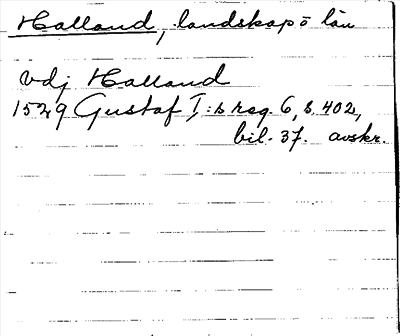 Halland, landskap o län
vdj Halland
1529 Gustaf I:s reg. 6, s. 402,
bil. 37. avskr.